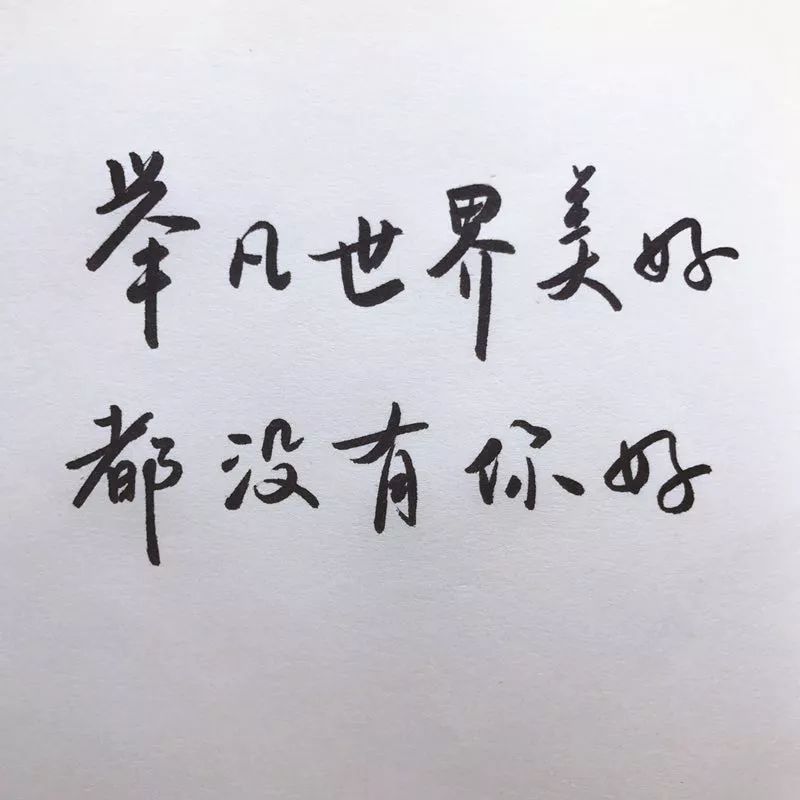 举凡世界美好
都没有你好